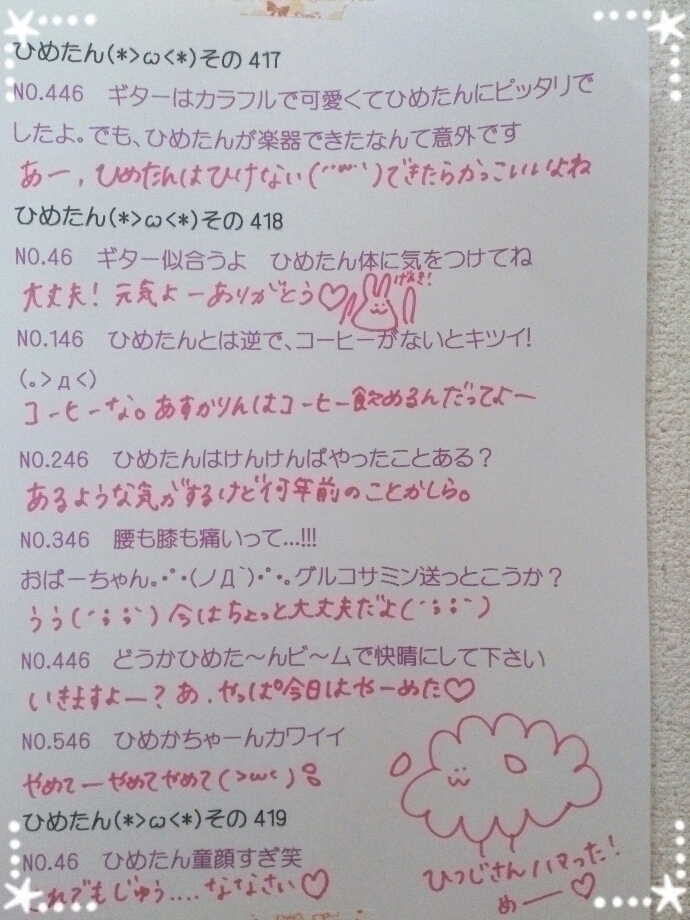 ひめたん(*>ω<*)その417
NO.446　ギターはカラフルで可愛くてひめたんにピッタリで
したよ。でも、ひめたんが楽器できたなんて意外です
あー、ひめたんはひけない(´･ω･`)できたらかっこいいよね
ひめたん(*>ω<*)その418
NO.46　ギター似合うよ　ひめたん体に気をつけてね
大丈夫！元気よーありがとう♡
げんき！
NO.146　ひめたんとは逆で、コーヒーがないとキツイ!
(｡>д<)
コーヒーな。あすかりんはコーヒー飲めるんだってよー
NO.246　ひめたんはけんけんぱやったことある？
あるような気がするけど何年前のことかしら。
NO.346　腰も膝も痛いって...!!!
おばーちゃん｡･ﾟ･(ノД`)･ﾟ･｡グルコサミン送っとこうか？
うぅ(´；；`)今はちょっと大丈夫だよ(´；；`)
NO.446　どうかひめた～んビ～ムで快晴にして下さい
いきますよー？あ、やっぱ今日はやーめた♡
NO.546　ひめかちゃーんカワイイ
やめてーやめてやめて(>ω<)
ひめたん(*>ω<*)その419
NO.46　ひめたん童顔すぎ笑
これでもじゅう....ななさい♡
ひつじさんハマった！
めー♡